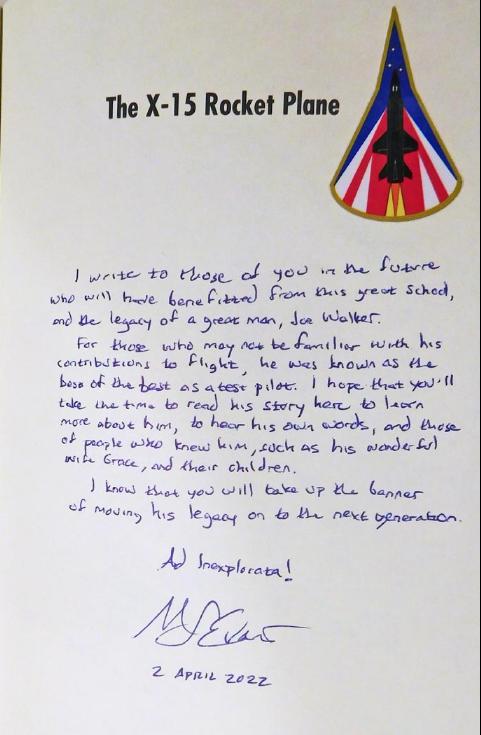 The X-15 Rocket Plane
I write to those of you in the future
who will have benefitted from this great school,
and the legacy of a great man, Joe Walker.
For those who may not be familiar with his
contributions to flight, he was known as the
best of the best as a test pilot. I hope that you'll
take the time to read his story here to learn
more about him, to hear his own words, and those
of people who knew him, such as his wonderful
wife Grace, and their children.
I know that you will take up the banner
of moving his legacy on to the next generation.
Ad Inexplorata!
2 APRIL 2022